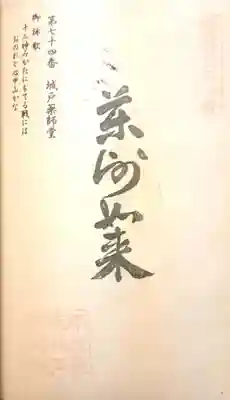 第七十四番 城戸薬師堂
御詠歌
十二神みかたにもてる戦には
おのれと心甲山かな
薬師如来